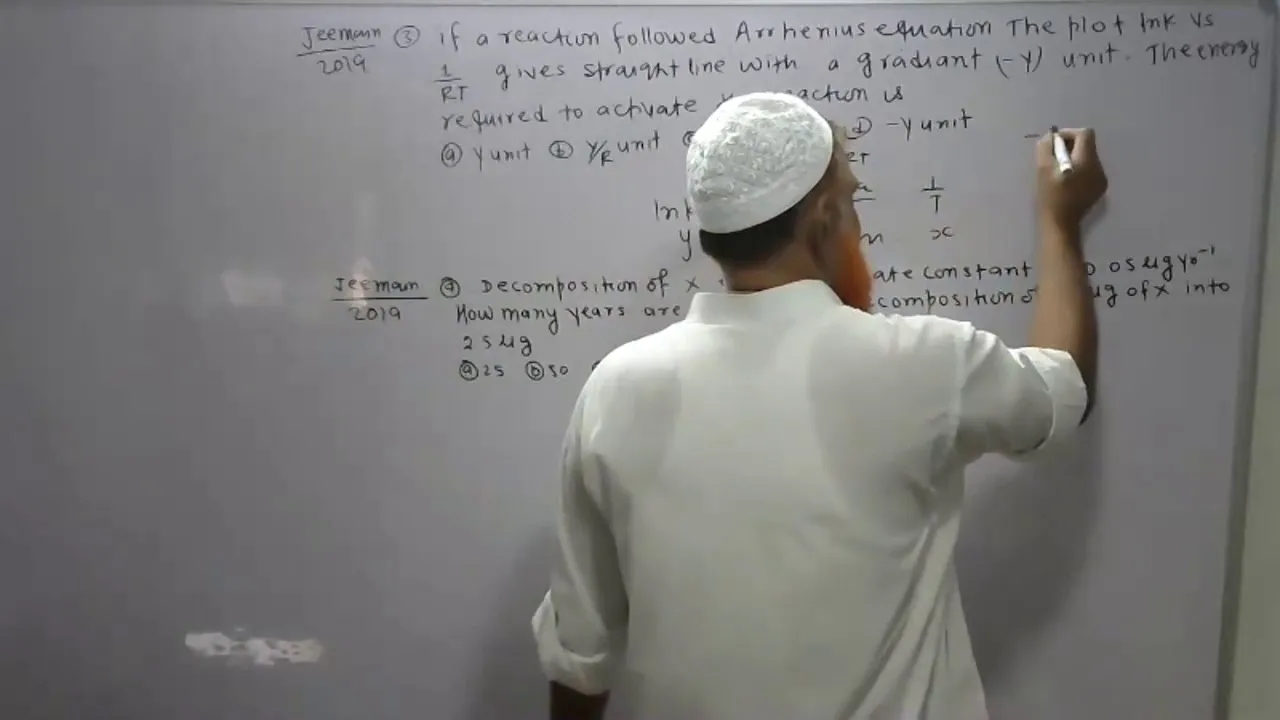 Jeemain ③ if a reaction followed Arrhenius equation The plot lnk vs
2019
1/RT gives straight line with a gradiant (-Y) unit. The energy
required to activate action is
ⓐ Y unit ⓑ Y/R unit ⓓ -Y unit
RT
lnk 1/T
y m x
Jeemain ④ Decomposition of x ate constant 0.05 μg yo⁻¹
2019 How many years are composition of μg of x into
25 μg
ⓐ 25 ⓑ 50